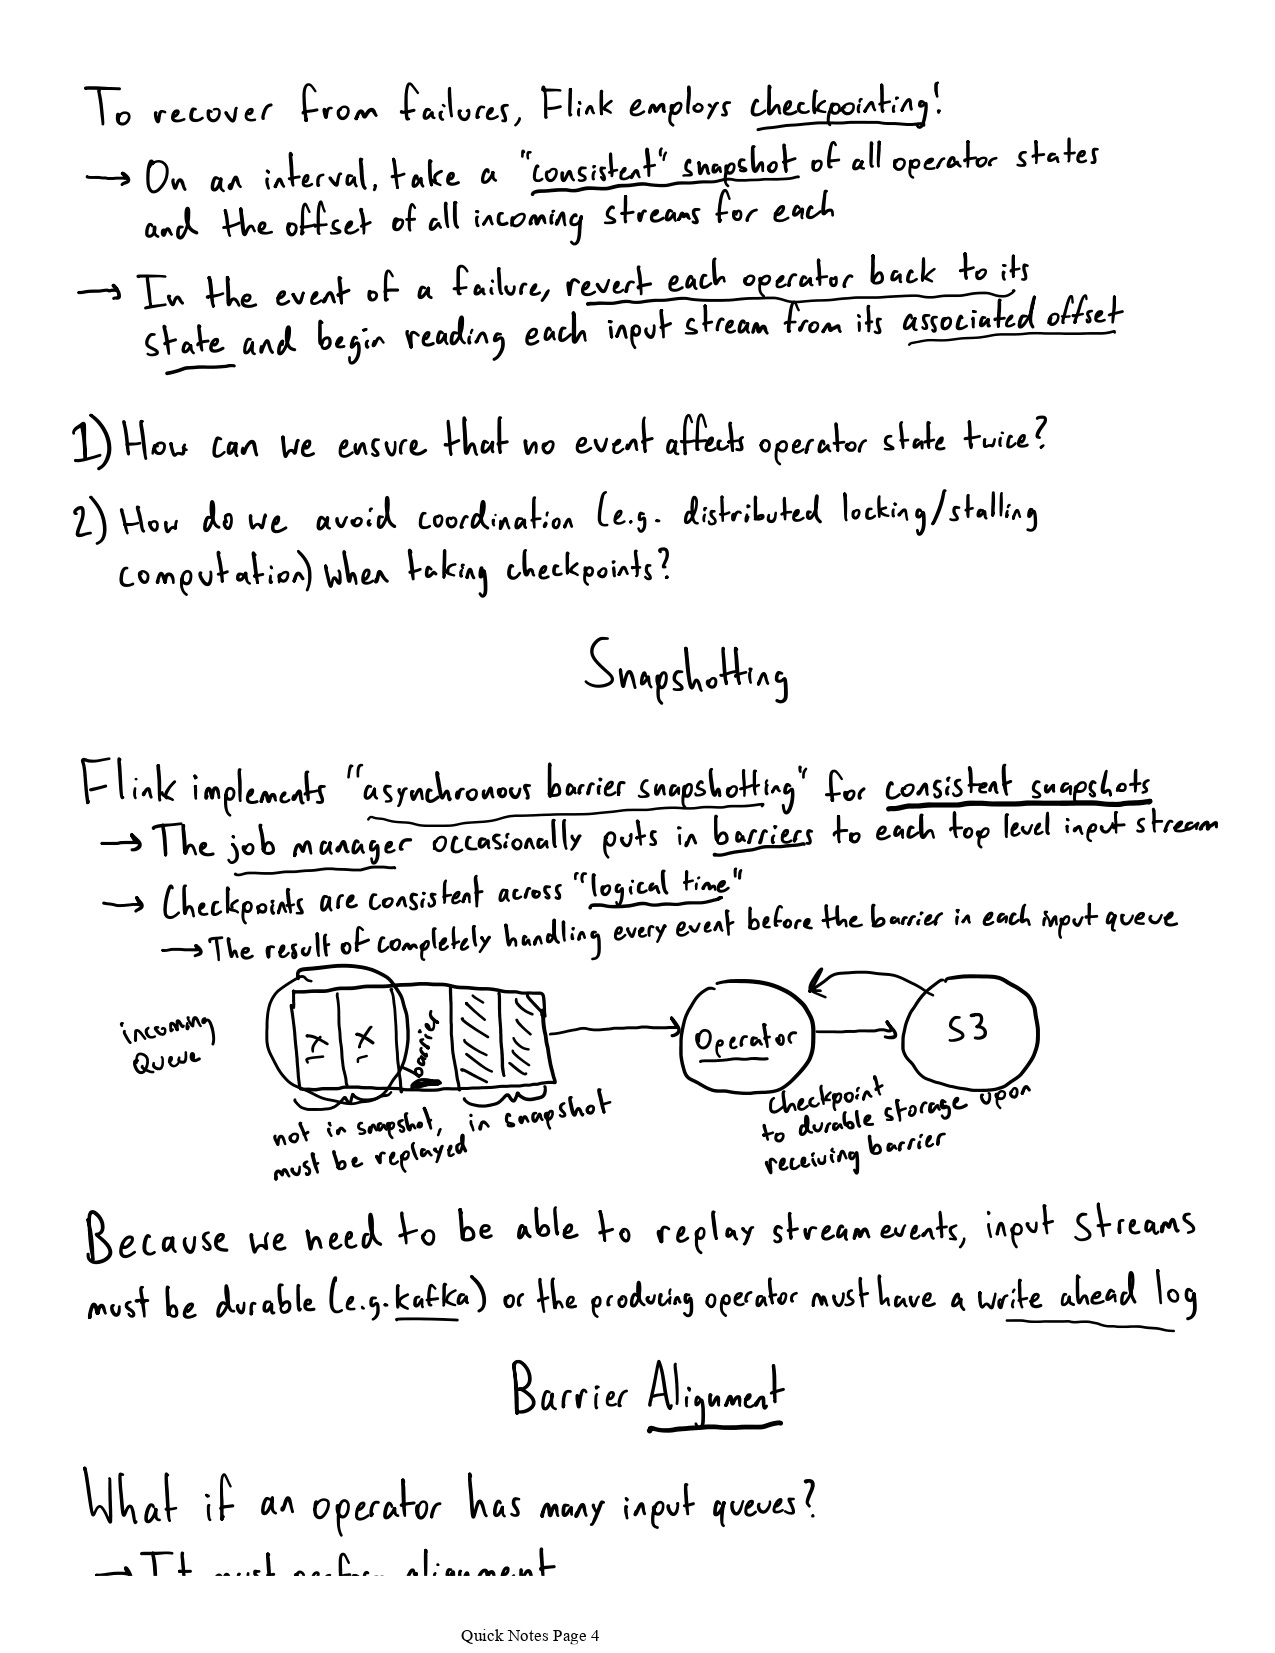 To recover from failures, Flink employs checkpointing!
→ On an interval, take a "consistent" snapshot of all operator states
and the offset of all incoming streams for each
→ In the event of a failure, revert each operator back to its
state and begin reading each input stream from its associated offset
1) How can we ensure that no event affects operator state twice?
2) How do we avoid coordination (e.g. distributed locking/stalling
computation) when taking checkpoints?
Snapshotting
Flink implements "asynchronous barrier snapshotting" for consistent snapshots
→ The job manager occasionally puts in barriers to each top level input stream
→ Checkpoints are consistent across "logical time"
→ The result of completely handling every event before the barrier in each input queue
incoming
Queue
barrier
Operator
S3
not in snapshot,
must be replayed
in snapshot
Checkpoint
to durable storage upon
receiving barrier
Because we need to be able to replay stream events, input streams
must be durable (e.g. kafka) or the producing operator must have a write ahead log
Barrier Alignment
What if an operator has many input queues?
→ It must perform alignment
Quick Notes Page 4